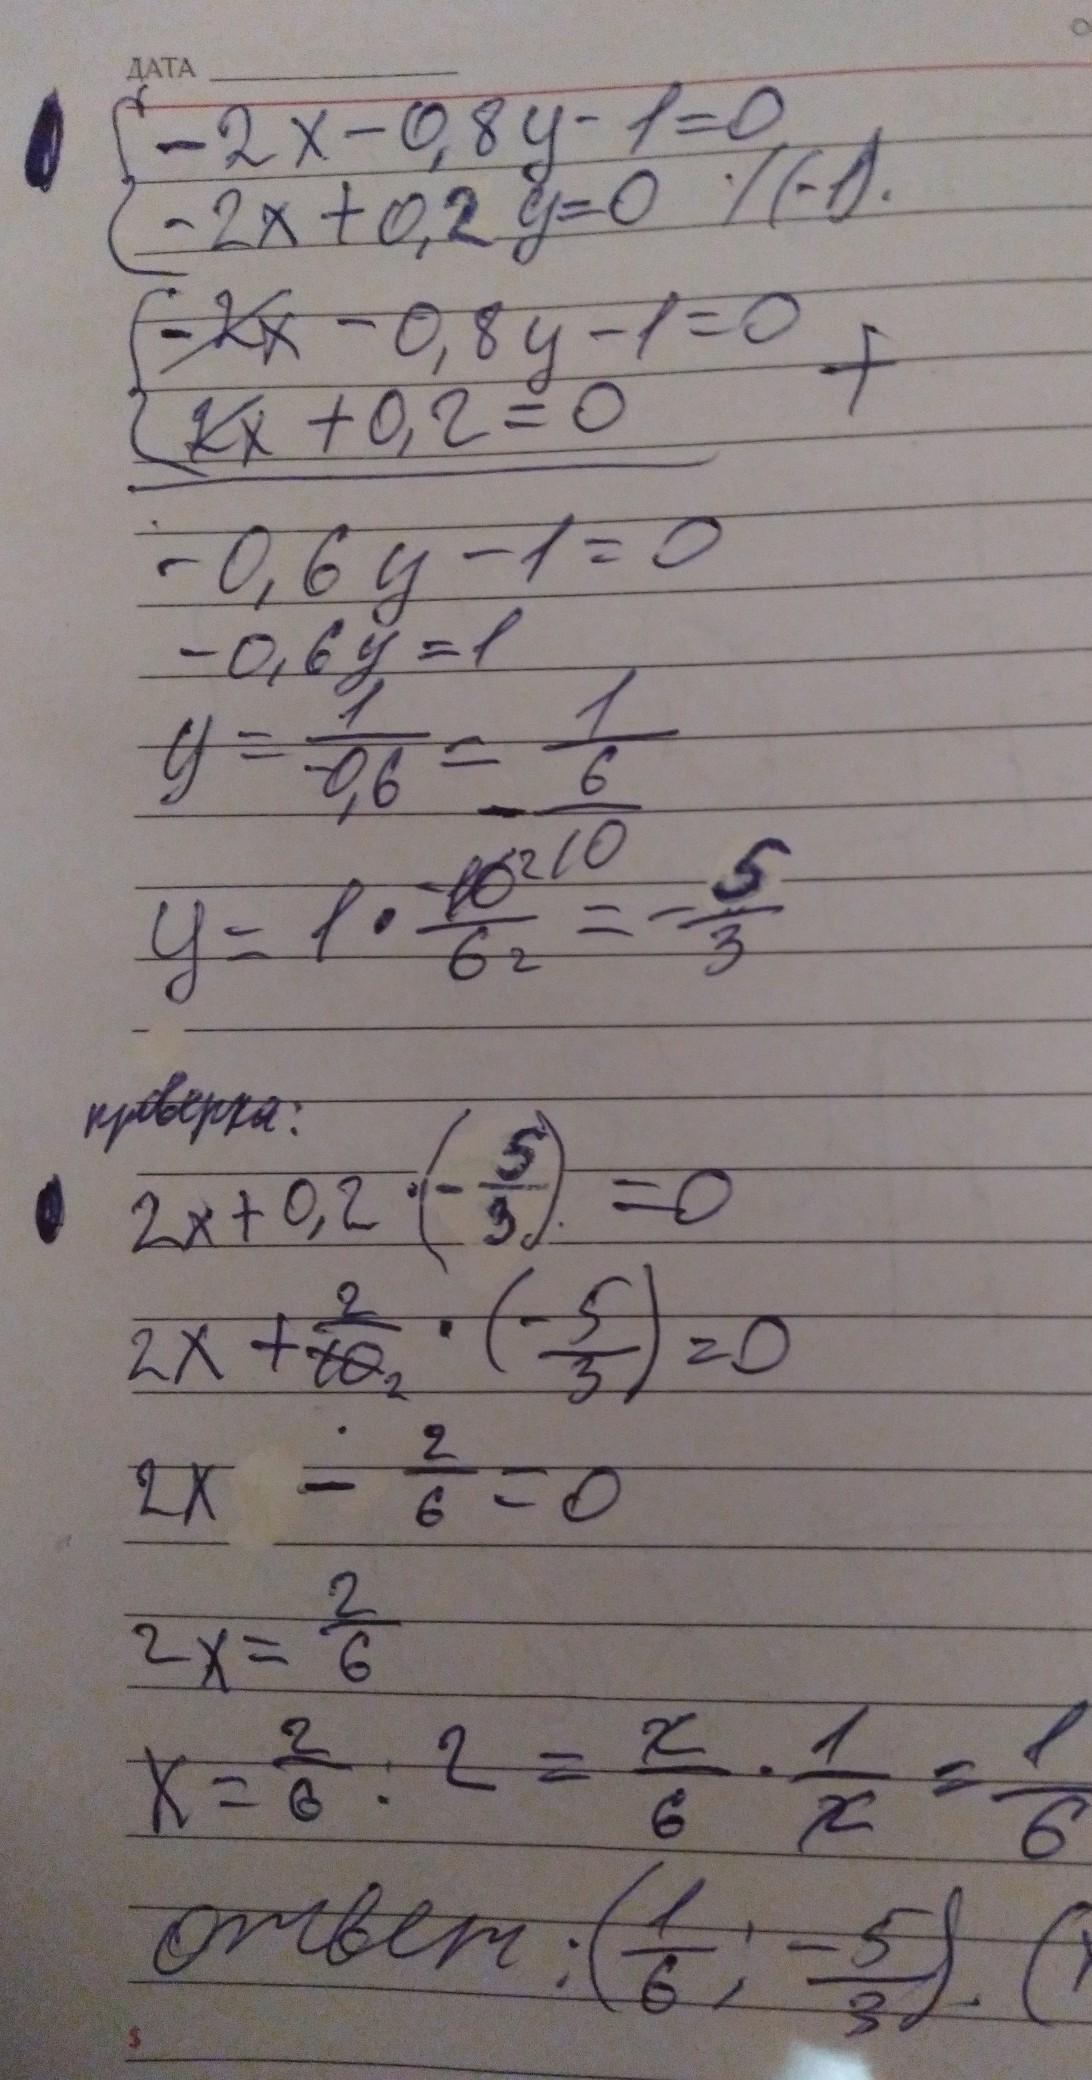 ДАТА
{-2x-0,8y-1=0
{-2x+0,2y=0 ·/(-1).
{-2x-0,8y-1=0 +
{2x+0,2=0
-0,6y-1=0
-0,6y=1
y=1/-0,6=-1/6/10
y=1·-10/6=-5/3
проверка:
2x+0,2·(-5/3)=0
2x+2/10 2·(-5/3)=0
2x-2/6=0
2x=2/6
x=2/6:2=2/6·1/2=1/6
ответ:(1/6;-5/3). (